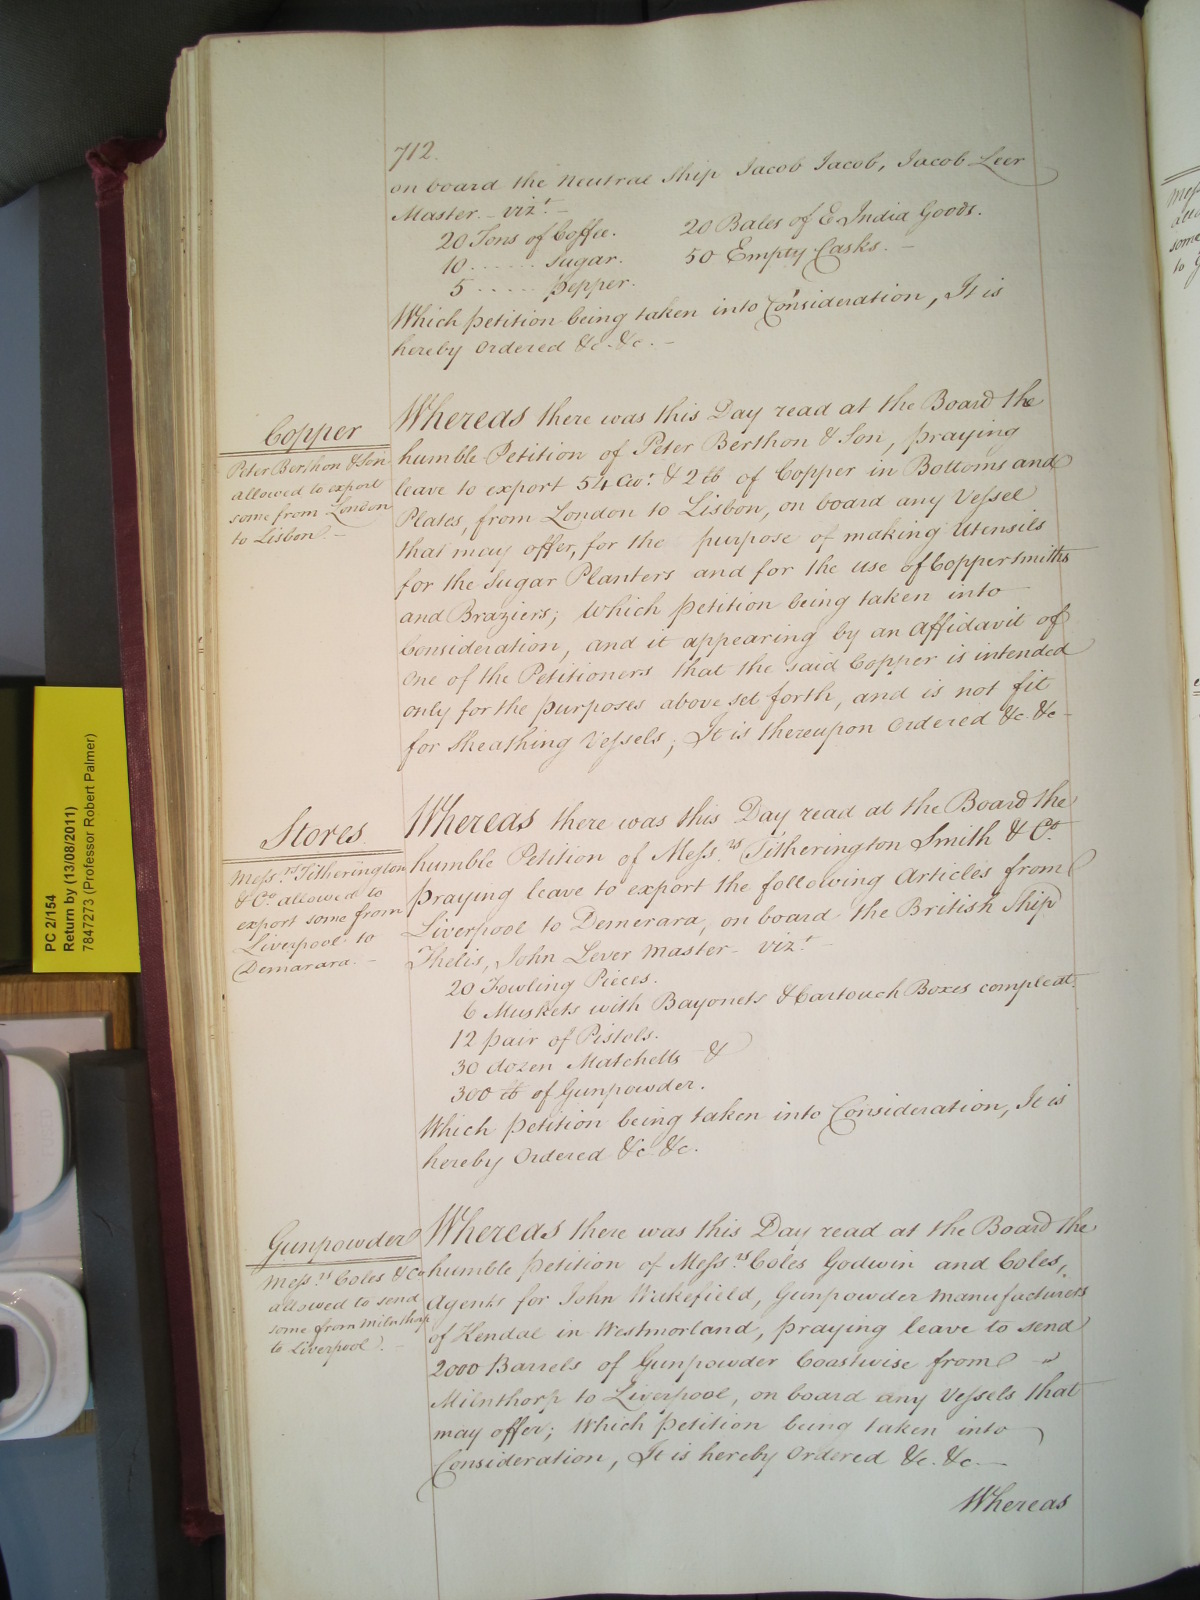 712.
on board the Neutral Ship Jacob Jacob, Jacob Leer
Master - vizt. -
20 Tons of Coffee. 20 Bales of E. India Goods.
10 ...... Sugar. 50 Empty Casks. -
5 ..... Pepper.
Which Petition being taken into Consideration, It is
hereby Ordered &c. &c. -
Copper
Peter Berthon & Son
allowed to export
some from London
to Lisbon. -
Whereas there was this Day read at the Board the
humble Petition of Peter Berthon & Son, praying
leave to export 54 Cwt. & 2 lb of Copper in Bottoms and
Plates, from London to Lisbon, on board any Vessel
that may offer, for the purpose of making Utensils
for the Sugar Planters and for the use of Coppersmiths
and Braziers; Which Petition being taken into
Consideration, and it appearing by an Affidavit of
One of the Petitioners that the said Copper is intended
only for the purposes above set forth, and is not fit
for Sheathing Vessels; It is thereupon Ordered &c. &c -
Stores.
Messrs. Titherington
& Co. allowed to
export some from
Liverpool to
Demarara. -
Whereas there was this Day read at the Board the
humble Petition of Messrs. Titherington Smith & Co.
praying leave to export the following Articles from
Liverpool to Demerara, on board the British Ship
Thetis, John Lever Master - vizt. -
20 Fowling Pieces.
6 Muskets with Bayonets & Cartouch Boxes compleat.
12 pair of Pistols.
30 dozen Matchetts &
300 lb of Gunpowder.
Which Petition being taken into Consideration, It is
hereby Ordered &c. &c.
Gunpowder
Messrs. Coles & Co
allowed to send
some from Milnthorp
to Liverpool. -
Whereas there was this Day read at the Board the
humble Petition of Messrs. Coles Godwin and Coles,
Agents for John Wakefield, Gunpowder Manufacturers
of Kendal in Westmorland, praying leave to send
2000 Barrels of Gunpowder Coastwise from
Milnthorp to Liverpool, on board any Vessels that
may offer; Which Petition being taken into
Consideration, It is hereby Ordered &c. &c -
Whereas
PC 2/154
Return by (13/08/2011)
7847273 (Professor Robert Palmer)